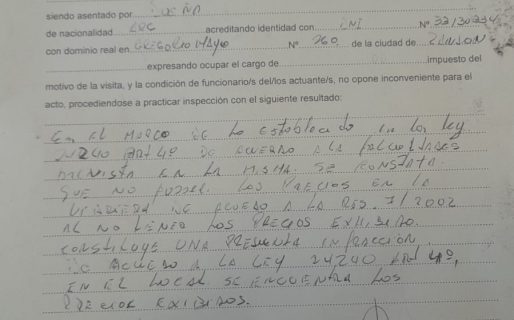 siendo asentado por
de nacionalidad ARG acreditando identidad con DNI Nº
con domicilio real en GREGORIO MAYO Nº 960 de la ciudad de
expresando ocupar el cargo de impuesto del
motivo de la visita, y la condición de funcionario/s del/los actuante/s, no opone inconveniente para el
acto, procediendose a practicar inspección con el siguiente resultado:
En EL MARCO DE Lo establecido en la ley
24240 Art 4º DE ACUERDO A LA FACULTADES
EN LA MISMA. SE CONSTATA
QUE NO LOS PRECIOS EN LA
VIDRIERA DE ACUERDO A LA RES. 7/2002
AL NO TENER LOS PRECIOS EXHIBIDO.
CONSTITUYE UNA PRESUNTA INFRACCIÓN
DE ACUERDO A LA LEY 24240 ART 4º,
EN EL LOCAL SE ENCUENTRA LOS
PRECIOS EXIBIDOS.